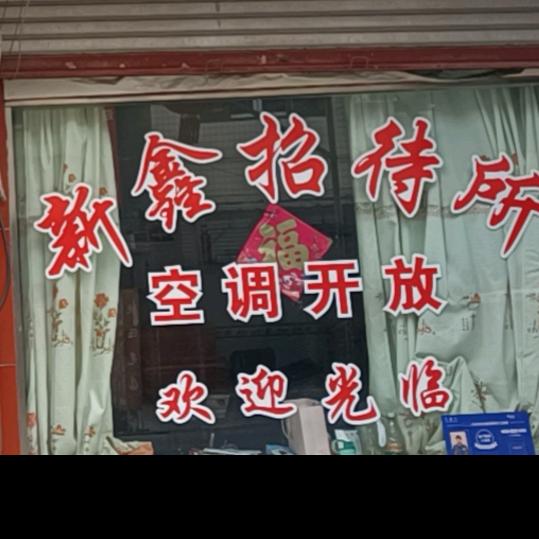 新鑫招待所
福
空调开放
欢迎光临